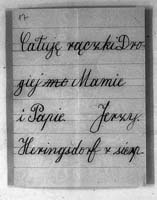 17
Całuję rączki Dro
giej mo Mamie
i Papie. Jerzy.
Heringsdorf x sierp.